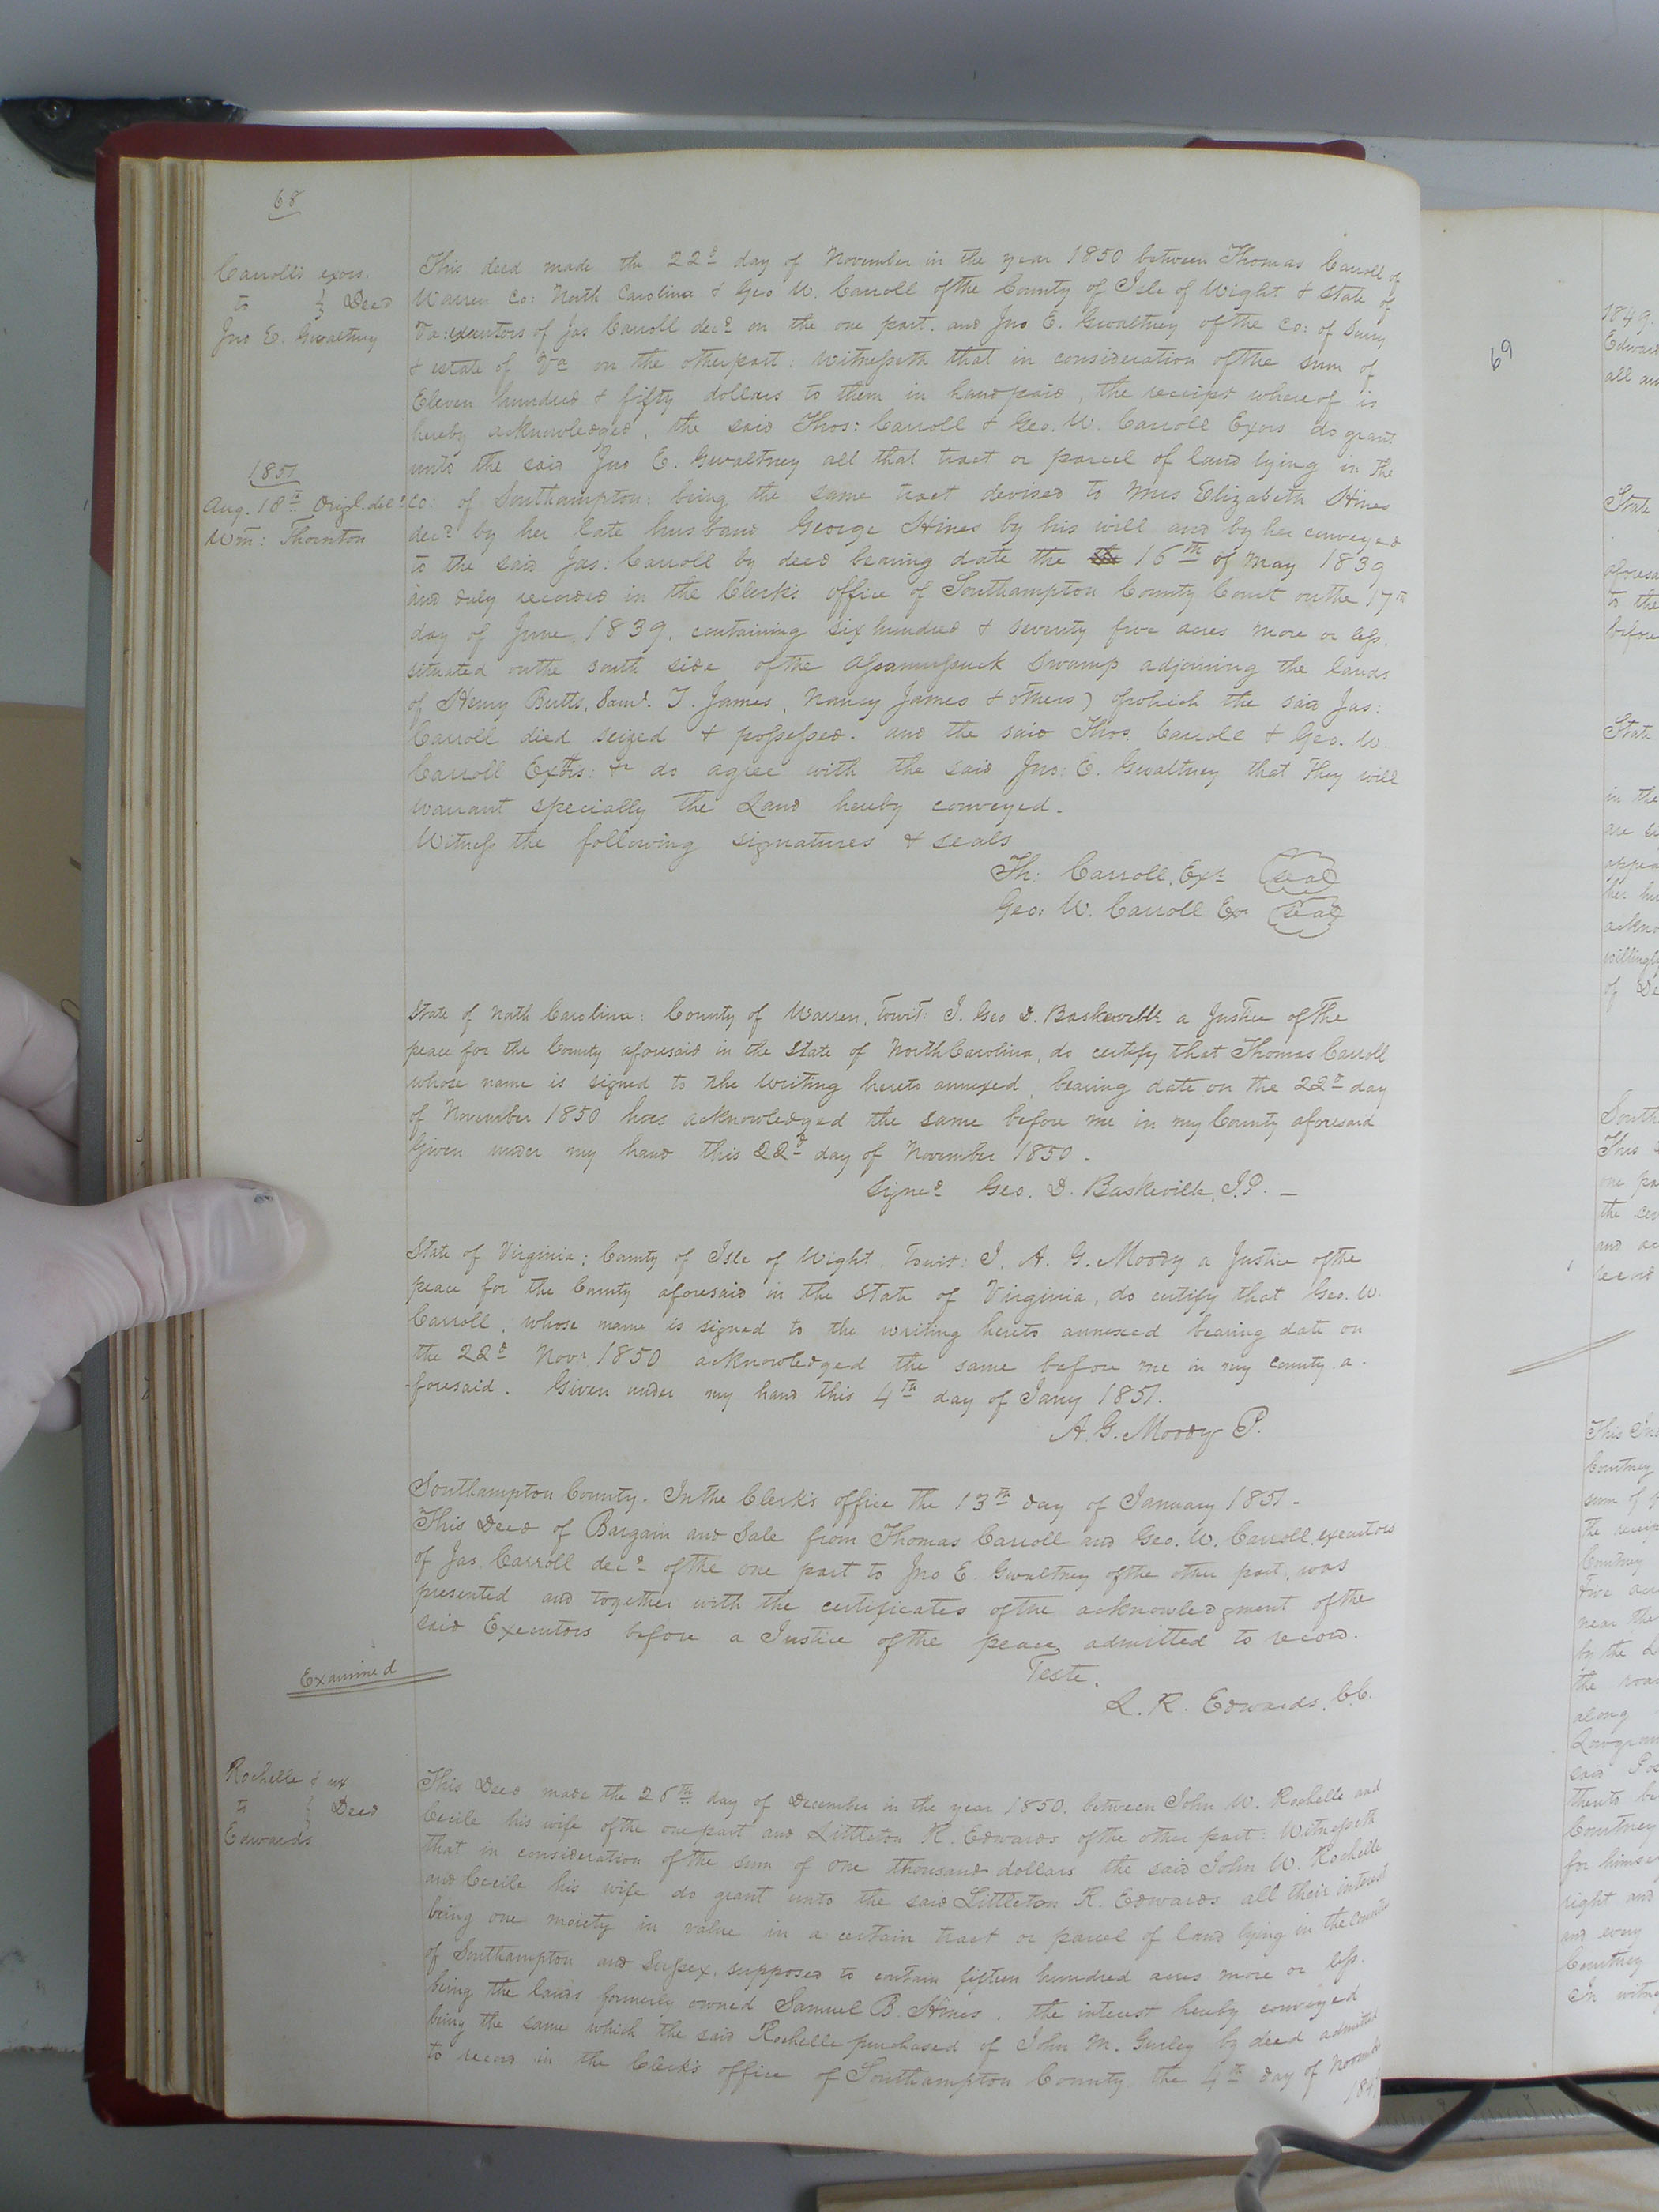 68
Carroll's exors.
to } Deed
Jno E. Gwaltney
This deed made the 22d day of November in the year 1850 between Thomas Carroll of
Warren Co: North Carolina & Geo W. Carroll of the County of Isle of Wight & State of
Va: executors of Jas Carroll decd on the one part. and Jno E. Gwaltney of the Co: of Surry
& estate of Va on the other part: Witnesseth that in consideration of the sum of
Eleven hundred & fifty dollars to them in hand paid, the receipt whereof is
hereby acknowledged, the said Thos: Carroll & Geo. W. Carroll Exors do grant
unto the said Jno E. Gwaltney all that tract or parcel of land lying in the
1851
Aug. 18th Origl. deld
Wm: Thornton
Co: of Southampton: being the same tract devised to Mrs Elizabeth Hines
decd by her late husband George Hines by his will and by her conveyed
to the said Jas: Carroll by deed bearing date the 16th of May 1839
and duly recorded in the Clerk's office of Southampton County Court on the 17th
day of June, 1839, containing six hundred & seventy five acres more or less,
situated on the south side of the Assamussuck Swamp adjoining the lands
of Henry Butts, Saml. T. James, Nancy James & others) of which the said Jas:
Carroll died seized & possessed. and the said Thos. Carroll & Geo. W.
Carroll Exors: do agree with the said Jno: E. Gwaltney that they will
warrant specially the Land hereby conveyed.
Witness the following signatures & seals
Th: Carroll, Exr seal
Geo: W. Carroll Exr seal
State of North Carolina: County of Warren, Towit: I. Geo D. Baskerville a Justice of the
peace for the County aforesaid in the State of North Carolina, do certify that Thomas Carroll
whose name is signed to the writing hereto annexed, bearing date on the 22d day
of November 1850 has acknowledged the same before me in my County aforesaid
Given under my hand this 22d day of November 1850.
Signed Geo. D. Baskeville, J.P. —
State of Virginia; County of Isle of Wight, Towit: I, A. G. Moody a Justice of the
peace for the County aforesaid in the State of Virginia, do certify that Geo. W.
Carroll, whose name is signed to the writing hereto annexed bearing date on
the 22d Novr. 1850 acknowledged the same before me in my county a-
foresaid. Given under my hand this 4th day of Jany 1851.
A. G. Moody P.
Southampton County. In the Clerk's office the 13th day of January 1851-
This Deed of Bargain and Sale from Thomas Carroll and Geo. W. Carroll, executors
of Jas. Carroll decd of the one part to Jno E. Gwaltney of the other part, was
presented and together with the certificates of the acknowledgment of the
said Executors before a Justice of the peace, admitted to record.
Examined
Teste,
L. R. Edwards, C.C.
Rochelle & ux
to } Deed
Edwards
This Deed made the 26th day of December in the year 1850, between John W. Rochelle and
Cecile his wife of the one part and Littleton R. Edwards of the other part: Witnesseth
that in consideration of the sum of one thousand dollars the said John W. Rochelle
and Cecile his wife do grant unto the said Littleton R. Edwards all their interest
being one moiety in value in a certain tract or parcel of land lying in the Counties
of Southampton and Sussex, supposed to contain fifteen hundred acres more or less.
being the lands formerly owned Samuel B. Hines, the interest hereby conveyed
being the same which the said Rochelle purchased of John M. Gurley by deed admitted
to record in the Clerk's office of Southampton County the 4th day of
69
1849.
State
State
This
and every
Courtney